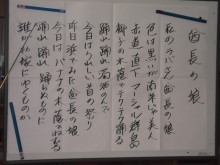 酋長の娘
私のラバさん 酋長の娘
色は黒いが 南洋じゃ美人
赤道直下 マーシャル群島
椰子の木陰で テクテク踊る
踊れ踊れ
今日はうれしい 首の祭り
昨日浜でみた 酋長の娘
今日はバナナの 木陰で
踊れ踊れ 踊らぬものに
誰がお嫁に ゆくものか